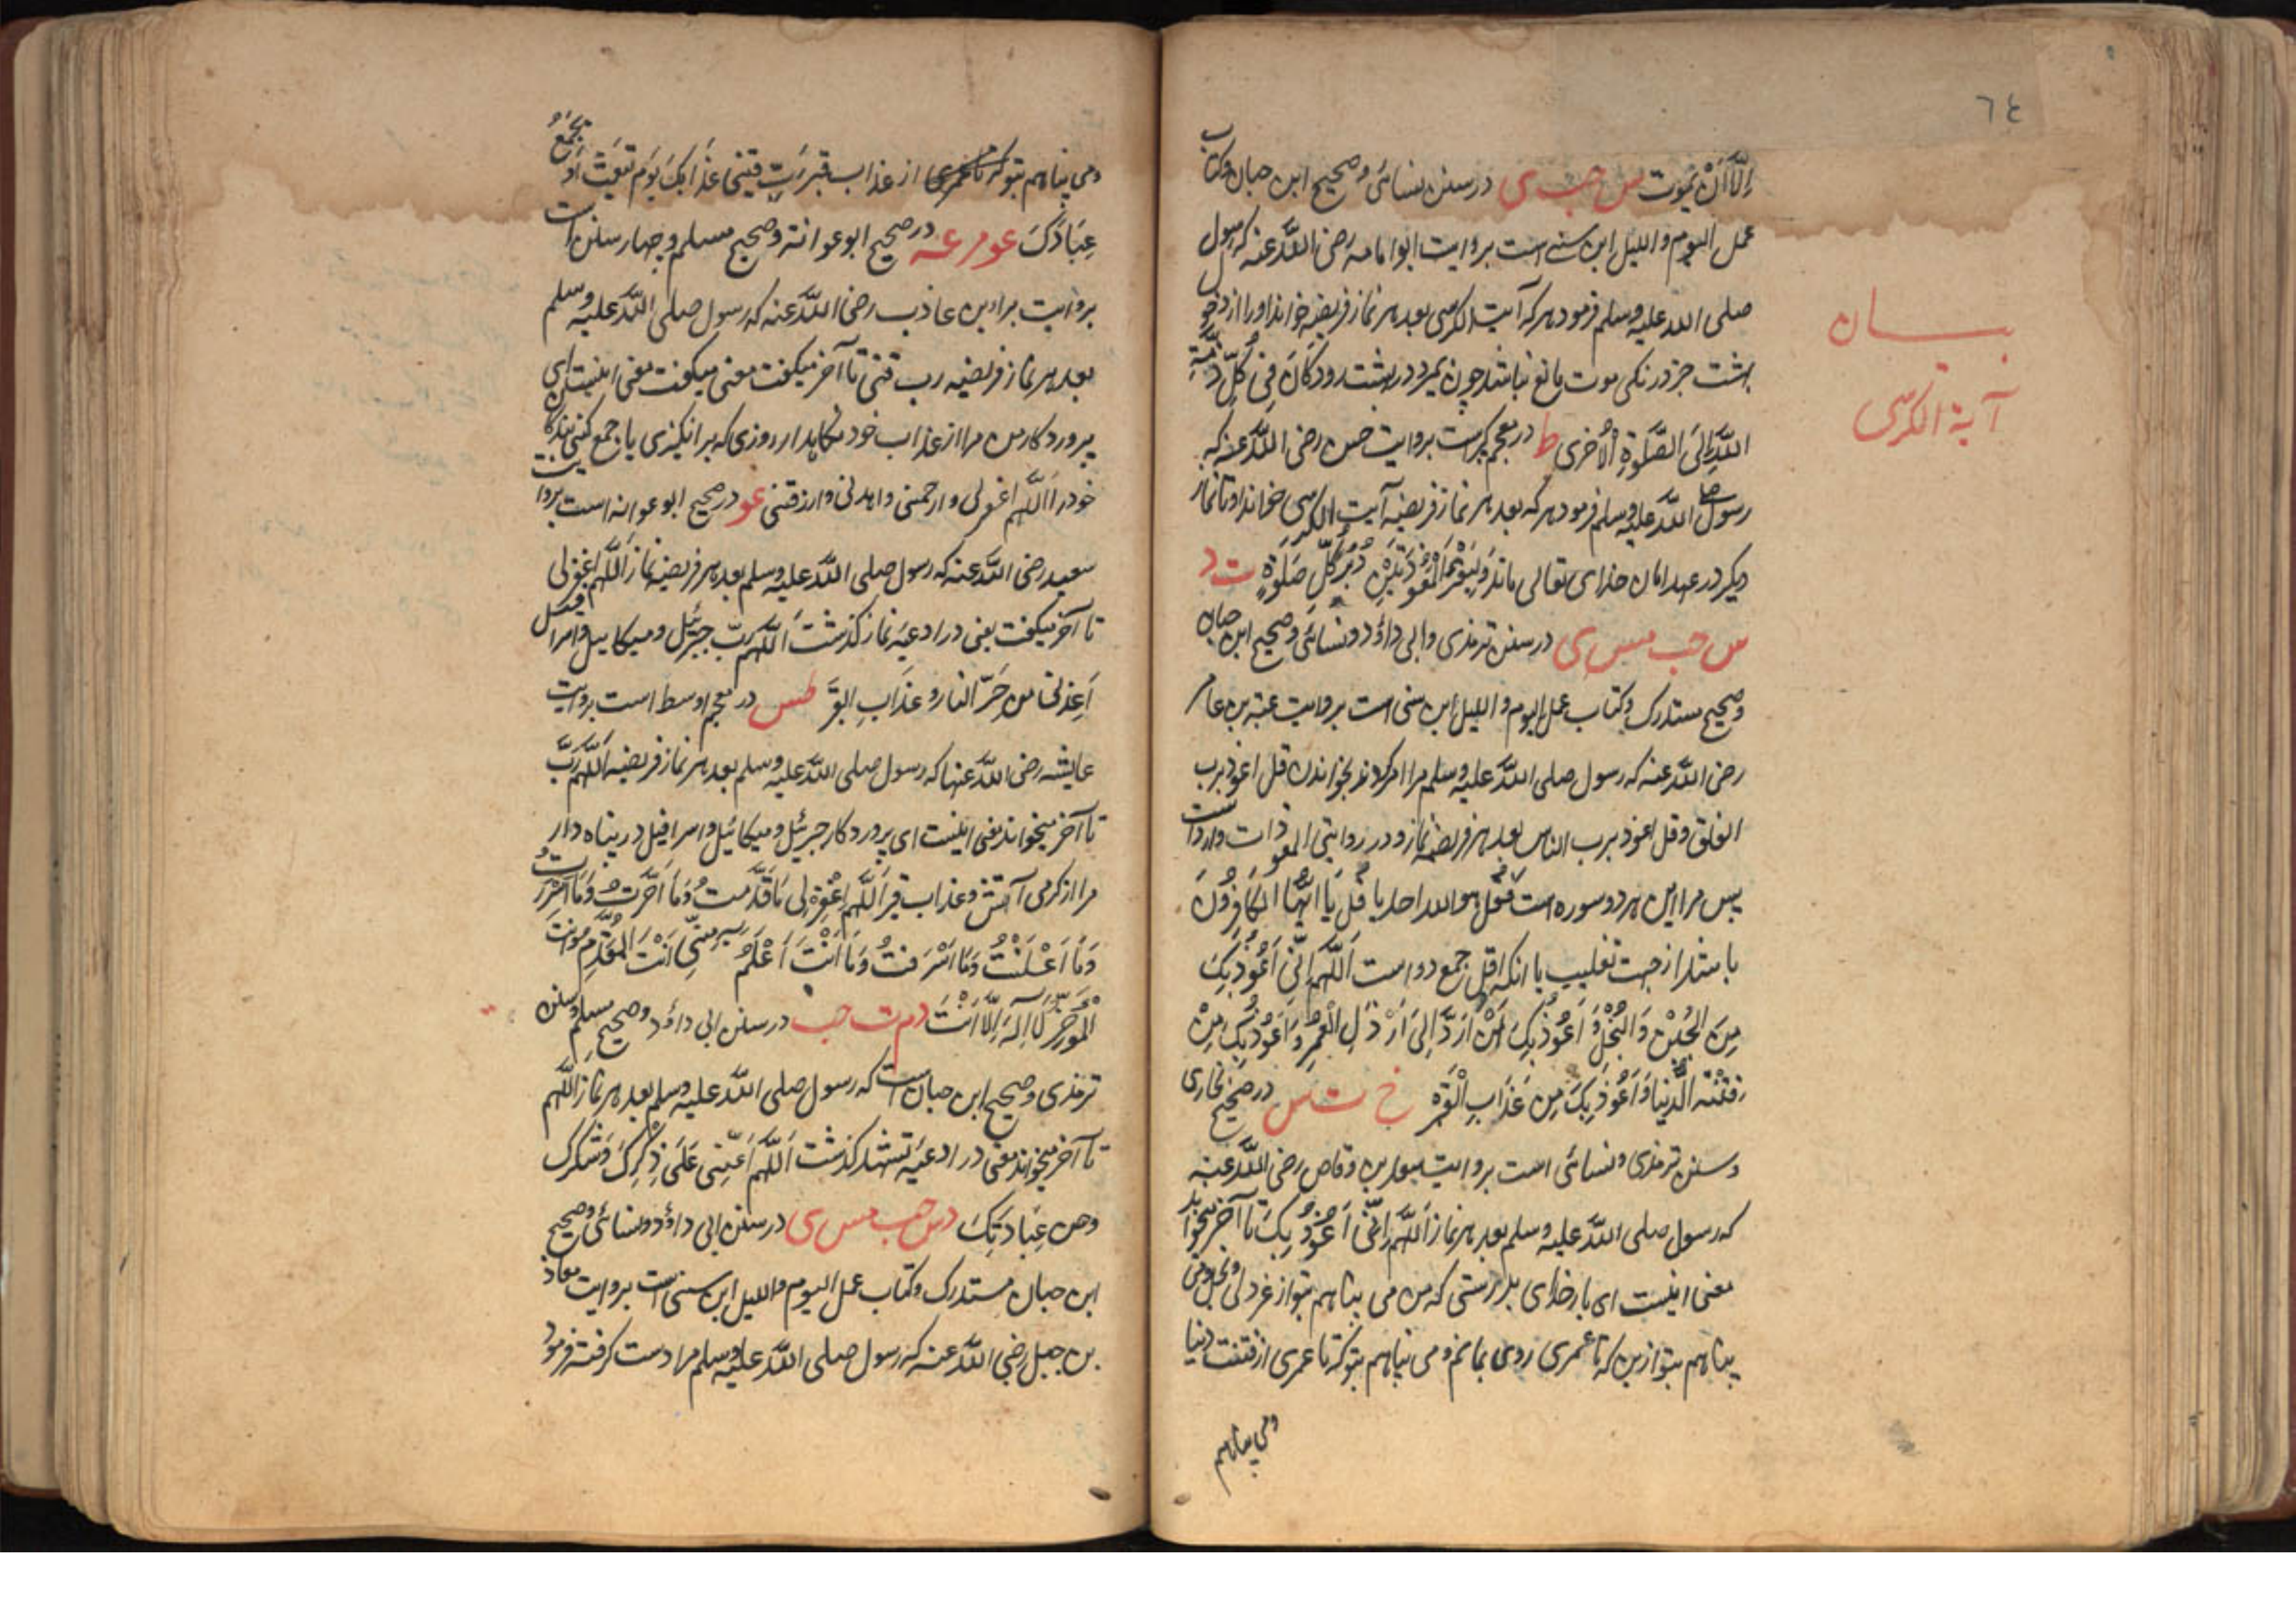 ٦٤
اِلَّا اَنْ یَّمُوت س حب ی در سنن نسائی و صحیح ابن حبان و کتاب
عمل الیوم و اللیل ابن سنی است بروایت ابو امامه رضی اللّٰه عنه که رسول
صلی اللّٰه علیه وسلم فرمود هر که آیت الکرسی بعد هر نماز فریضه خواند او را از دخول
بهشت جز درنکی موت مانع نباشد چون بمیرد در بهشت رود کَانَ فِی ذِمَّةِ
بیان
آیة الکرسی
اللّٰهِ اِلَی الصَّلٰوةِ الْاُخْرٰی ط در معجم کبیر است بروایت حسن رضی اللّٰه عنه که
رسول صلی اللّٰه علیه وسلم فرمود هر که بعد هر نماز فریضه آیت الکرسی خواند او تا نماز
دیکر در عهد امان خدای تعالی ماند وَلْیَقْرَأِ الْمُعَوِّذَتَیْنِ دُبُرَ کُلِّ صَلٰوةٍ ت د
س حب مس ی در سنن ترمذی و ابی داؤد و نسائی و صحیح ابن حبان
و صحیح مستدرک و کتاب عمل الیوم و اللیل ابن سنی است بروایت عقبه بن عامر
رضی اللّٰه عنه که رسول صلی اللّٰه علیه وسلم مرا امر کردند بخواندن قل اعوذ برب
الفلق و قل اعوذ برب الناس بعد هر فریضه نماز و در روایتی المعوذات وارد است
پس مراد این هر دو سوره است قل هو اللّٰه احد یا قُلْ یَا اَیُّهَا الْکَافِرُوْنَ
باشد از جهت تغلیب یا انکه اقل جمع دو است اَللّٰهُمَّ اِنِّی اَعُوْذُ بِکَ
مِنَ الْجُبْنِ وَالْبُخْلِ وَ اَعُوْذُ بِکَ اَنْ اُرَدَّ اِلٰی اَرْذَلِ الْعُمُرِ وَ اَعُوْذُ بِکَ مِنْ
فِتْنَةِ الدُّنْیَا وَ اَعُوْذُ بِکَ مِنْ عَذَابِ الْقَبْرِ خ ت س در صحیح بخاری
و سنن ترمذی و نسائی است بروایت سعد بن وقاص رضی اللّٰه عنه
که رسول صلی اللّٰه علیه وسلم بعد هر نماز اَللّٰهُمَّ اِنِّی اَعُوْذُ بِکَ تا آخر میخواند
معنی اینست ای بار خدای بدرستی که من می پناهم بتو از غر دلی و بخل و می
پناهم بتو از من که تا عمری ردی بمانم و می پناهم بتو که تا عمری از فتنت دنیا
و می پناهم
و می پناهم بتو از عذاب قبر رَبِّ قِنِی عَذَابَکَ یَوْمَ تَبْعَثُ اَوْ تَجْمَعُ
عِبَادَکَ عو م عه در صحیح ابو عوانة و صحیح مسلم و چهار سنن است
بروایت براء بن عاذب رضی اللّٰه عنه که رسول صلی اللّٰه علیه وسلم
بعد هر نماز فریضه رب قنی تا آخر میکفت معنی اینست ای
پروردکار من مرا از عذاب خود نکاهدار روزی که بر انکیزی یا جمع کنی بندکان
خود را اَللّٰهُمَّ اغفرلی وارحمنی واهدنی وارزقنی عو در صحیح ابو عوانه است بروایت
سعید رضی اللّٰه عنه که رسول صلی اللّٰه علیه وسلم بعد هر فریضه نماز اَللّٰهُمَّ اغفرلی
تا آخر میکفت یعنی در ادعیه نماز کذشت اَللّٰهُمَّ رَبَّ جبرئیل و میکائیل و اسرافیل
اَعِذْنی من حَرِّ النار و عَذَابِ القبر طس در معجم اوسط است بروایت
عایشه رضی اللّٰه عنها که رسول صلی اللّٰه علیه وسلم بعد هر نماز فریضه اَللّٰهُمَّ رَبَّ
تا آخر میخواند معنی اینست ای پروردکار جبرئیل و میکائیل و اسرافیل در پناه دار
مرا از کرمی آتش و عذاب قبر اَللّٰهُمَّ اغْفِرْ لِی مَا قَدَّمْتُ وَمَا اَخَّرْتُ وَمَا اَسْرَرْتُ
وَمَا اَعْلَنْتُ وَمَا اَسْرَفْتُ وَمَا اَنْتَ اَعْلَمُ بِهٖ مِنِّی اَنْتَ الْمُقَدِّمُ وَاَنْتَ
الْمُؤَخِّرُ لَا اِلٰهَ اِلَّا اَنْتَ د م ت حب در سنن ابی داؤد و صحیح مسلم و سنن
ترمذی و صحیح ابن حبان است که رسول صلی اللّٰه علیه وسلم بعد هر نماز اَللّٰهُمَّ
تا آخر میخواند معنی در ادعیه تشهد کذشت اَللّٰهُمَّ اَعِنِّی عَلٰی ذِکْرِکَ وَشُکْرِکَ
وحسن عِبَادَتِکَ د س حب مس ی در سنن ابی داؤد و نسائی و صحیح
ابن حبان و مستدرک و کتاب عمل الیوم و اللیل ابن سنی است بروایت معاذ
بن جبل رضی اللّٰه عنه که رسول صلی اللّٰه علیه وسلم مرا دست کرفته فرمود